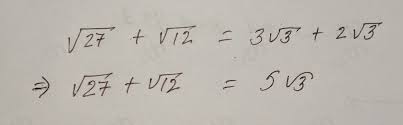 √27 + √12 = 3√3 + 2√3
⇒ √27 + √12 = 5√3